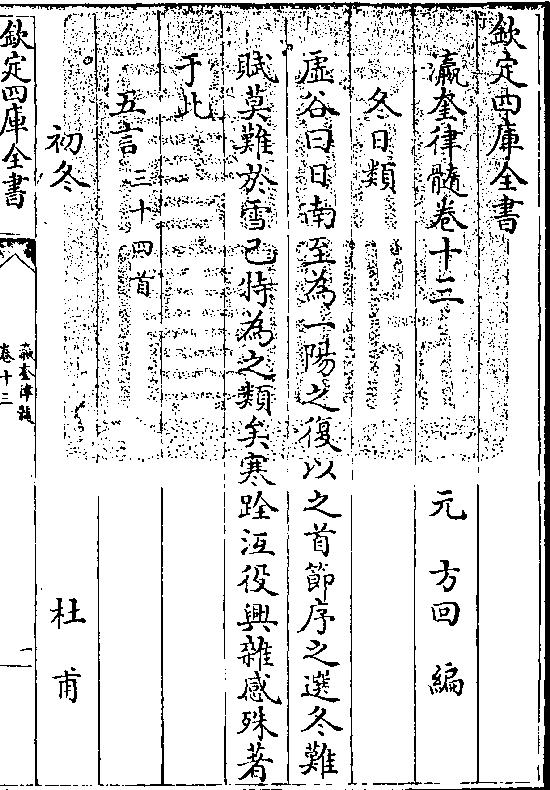 欽定四庫全書
瀛奎律髓卷十三
元 方回 編
冬日類
虛谷曰日南至為一陽之復以之首節序之選冬難
賦莫難於雪已特為之類矣寒跧沍役興雜感殊著
于此
五言三十四首
初冬
杜甫
欽定四庫全書
瀛奎律髓
卷十三
一